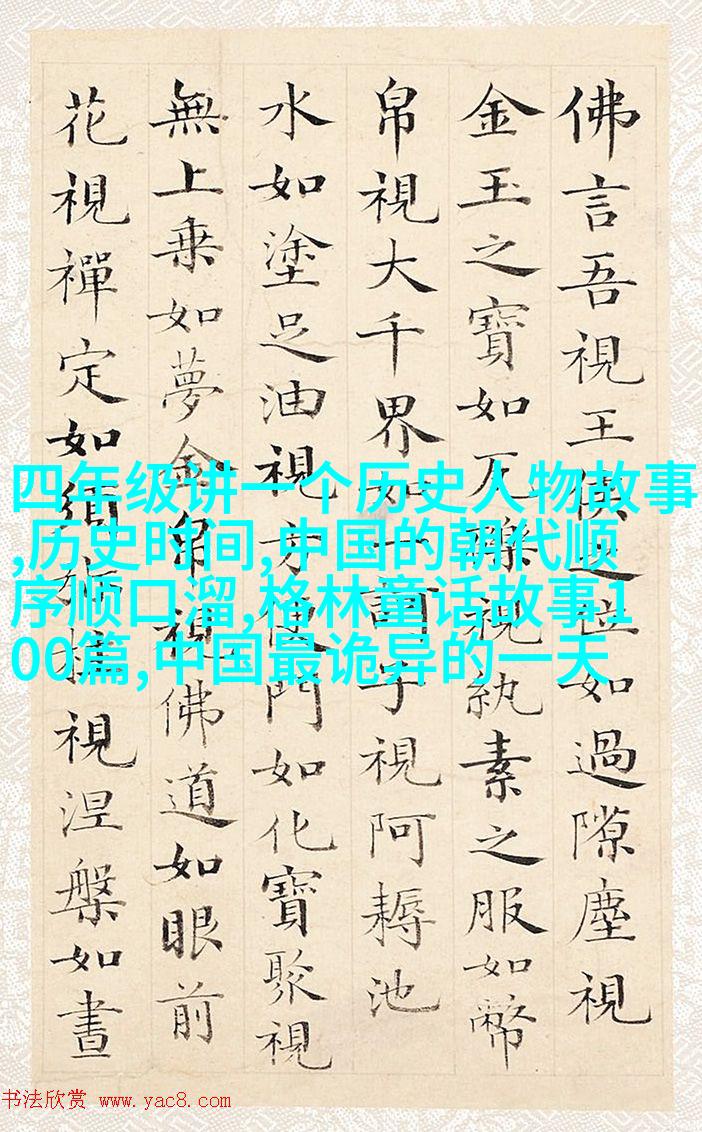 佛言吾視王侯之位如過隙塵視
金玉之寶如瓦礫視紈素之服如幣
帛視大千界如一訶子視阿耨池
水如塗足油視方便門如化寶聚視
無上乗如夢金帛視佛道如眼前
花視禪定如須弥柱視涅槃如晝
四年级讲一个历史人物故事
,历史时间,中国的朝代顺
序顺口溜,格林童话故事1
00篇,中国最诡异的一天
书法欣赏 www.yac8.com